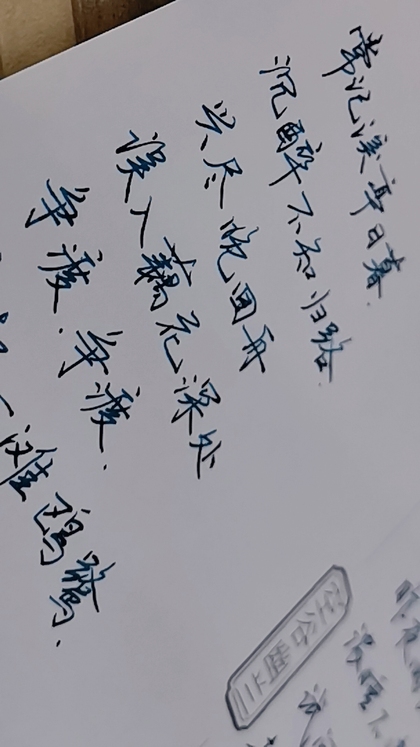 常记溪亭日暮.
沉醉不知归路.
兴尽晚回舟
误入藕花深处
争渡.争渡.
一滩鸥鹭.
昨夜
浓睡不